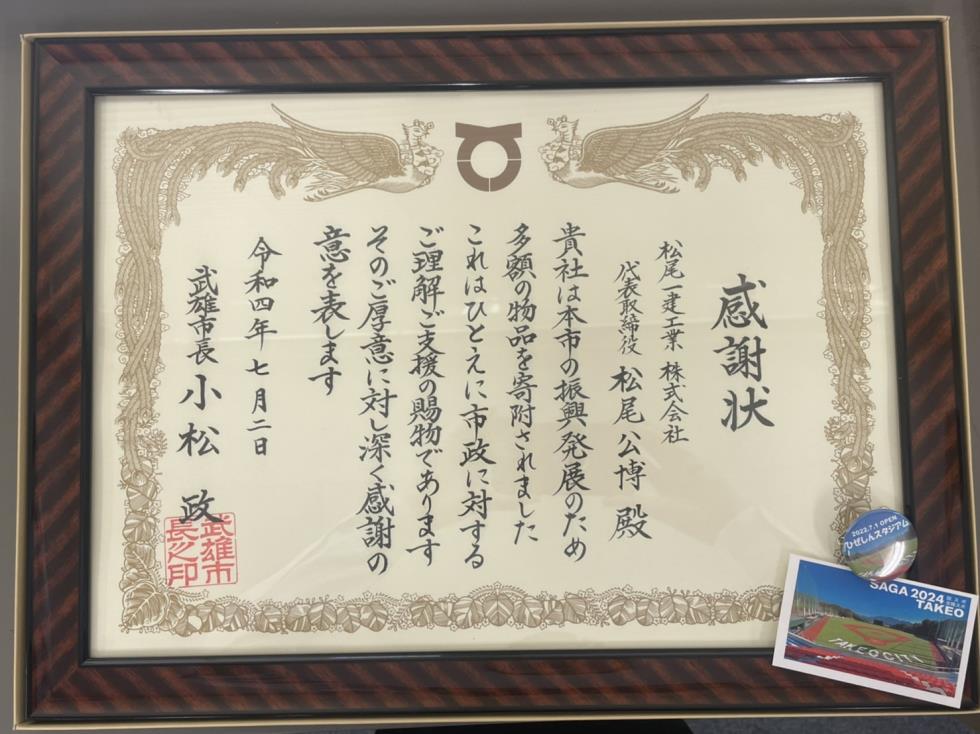 感謝状
松尾一建工業 株式会社
代表取締役 松尾公博 殿
貴社は本市の振興発展のため
多額の物品を寄附されました
これはひとえに市政に対する
ご理解ご支援の賜物であります
そのご厚意に対し深く感謝の
意を表します
令和四年 七月二日
武雄市長 小松 政
武雄市
長之印
2022.7.1 OPEN
ひぜしんスタジアム
SAGA 2024
TAKEO
TAKEO CITY